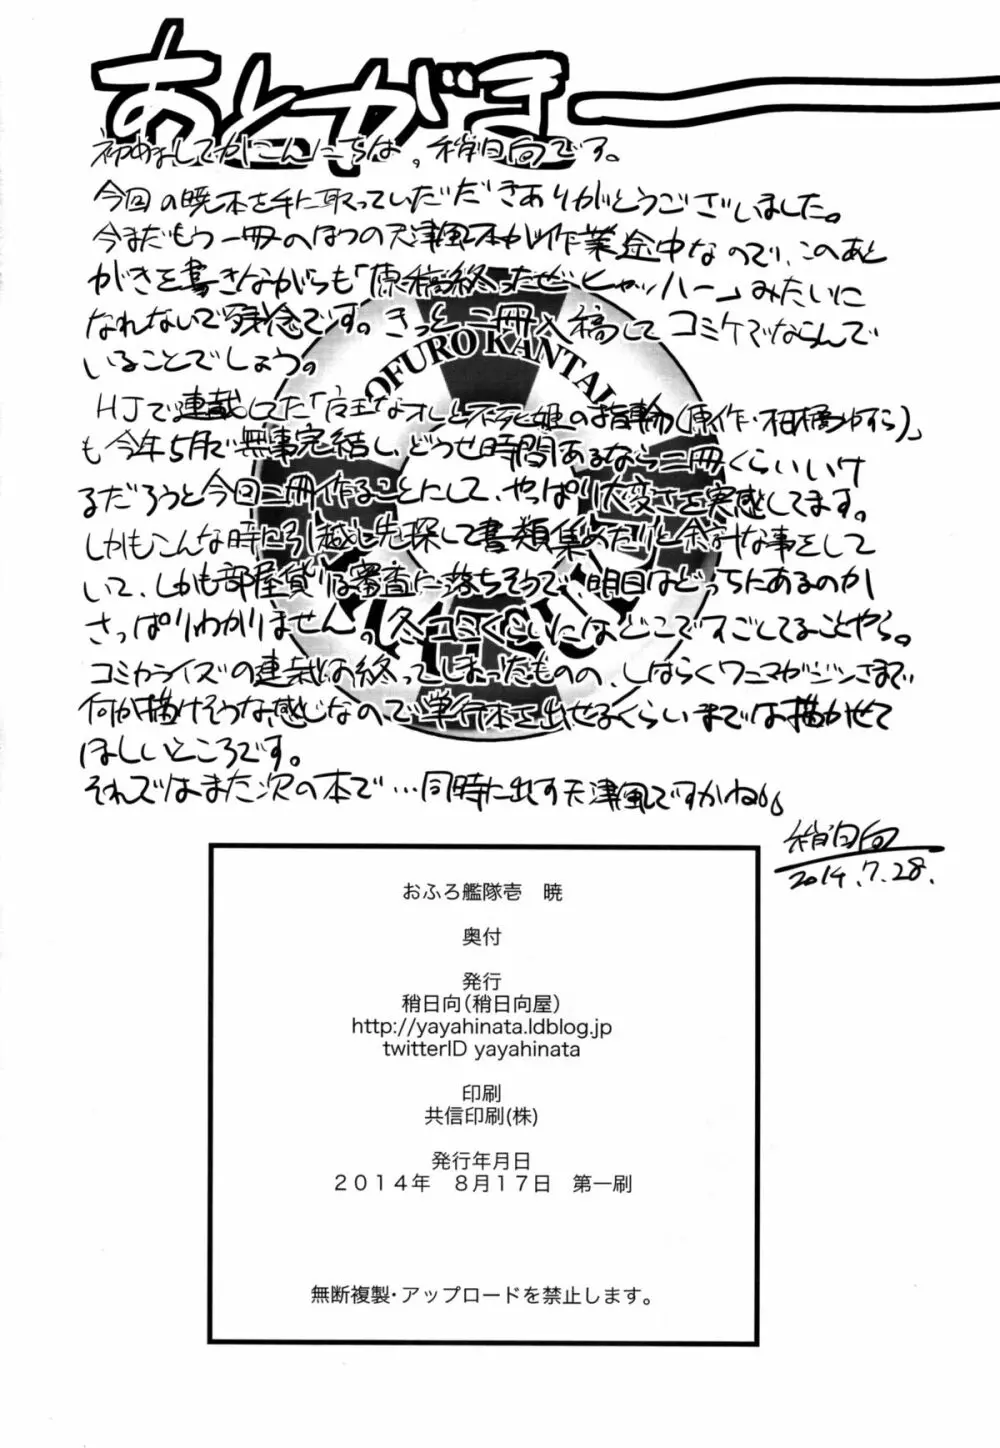 あとがき
初めましてかこんにちは、稍日向です。
今回の暁本を手に取っていただきありがとうございました。
今まだもう一冊のほうの天津風本が作業途中なので、このあと
がきを書きながらも「原稿終ったぜーヒャッハー」みたいに
なれないで残念です。きっと二冊入稿してコミケでならんで
いることでしょう。
OFURO KANTAI
HJで連載してた「店主なオレと不死姫の指輪(原作・柑橘ゆすら)」
も今年5月で無事完結し、どうせ時間あるなら二冊くらいいけ
るだろうと今回二冊作ることにして、やっぱり大変さを実感してます。
しかもこんな時に引越し先探して書類集めたりと余計な事をして
いて、しかも部屋貸りる審査に落ちそうで、明日はどっちにあるのか
さっぱりわかりません。冬コミくらいにはどこですごしてることやら。
コミカライズの連載は終ってしまったものの、しばらくワニマガジンさまで
何か描けそうな感じなので単行本を出せるくらいまでは描かせて
ほしいところです。
それではまた次の本で…同時に出す天津風ですかね。
稍日向
2014.7.28.
おふろ艦隊壱　暁
奥付
発行
稍日向(稍日向屋)
http://yayahinata.ldblog.jp
twitterID yayahinata
印刷
共信印刷(株)
発行年月日
２０１４年　８月１７日　第一刷
無断複製・アップロードを禁止します。